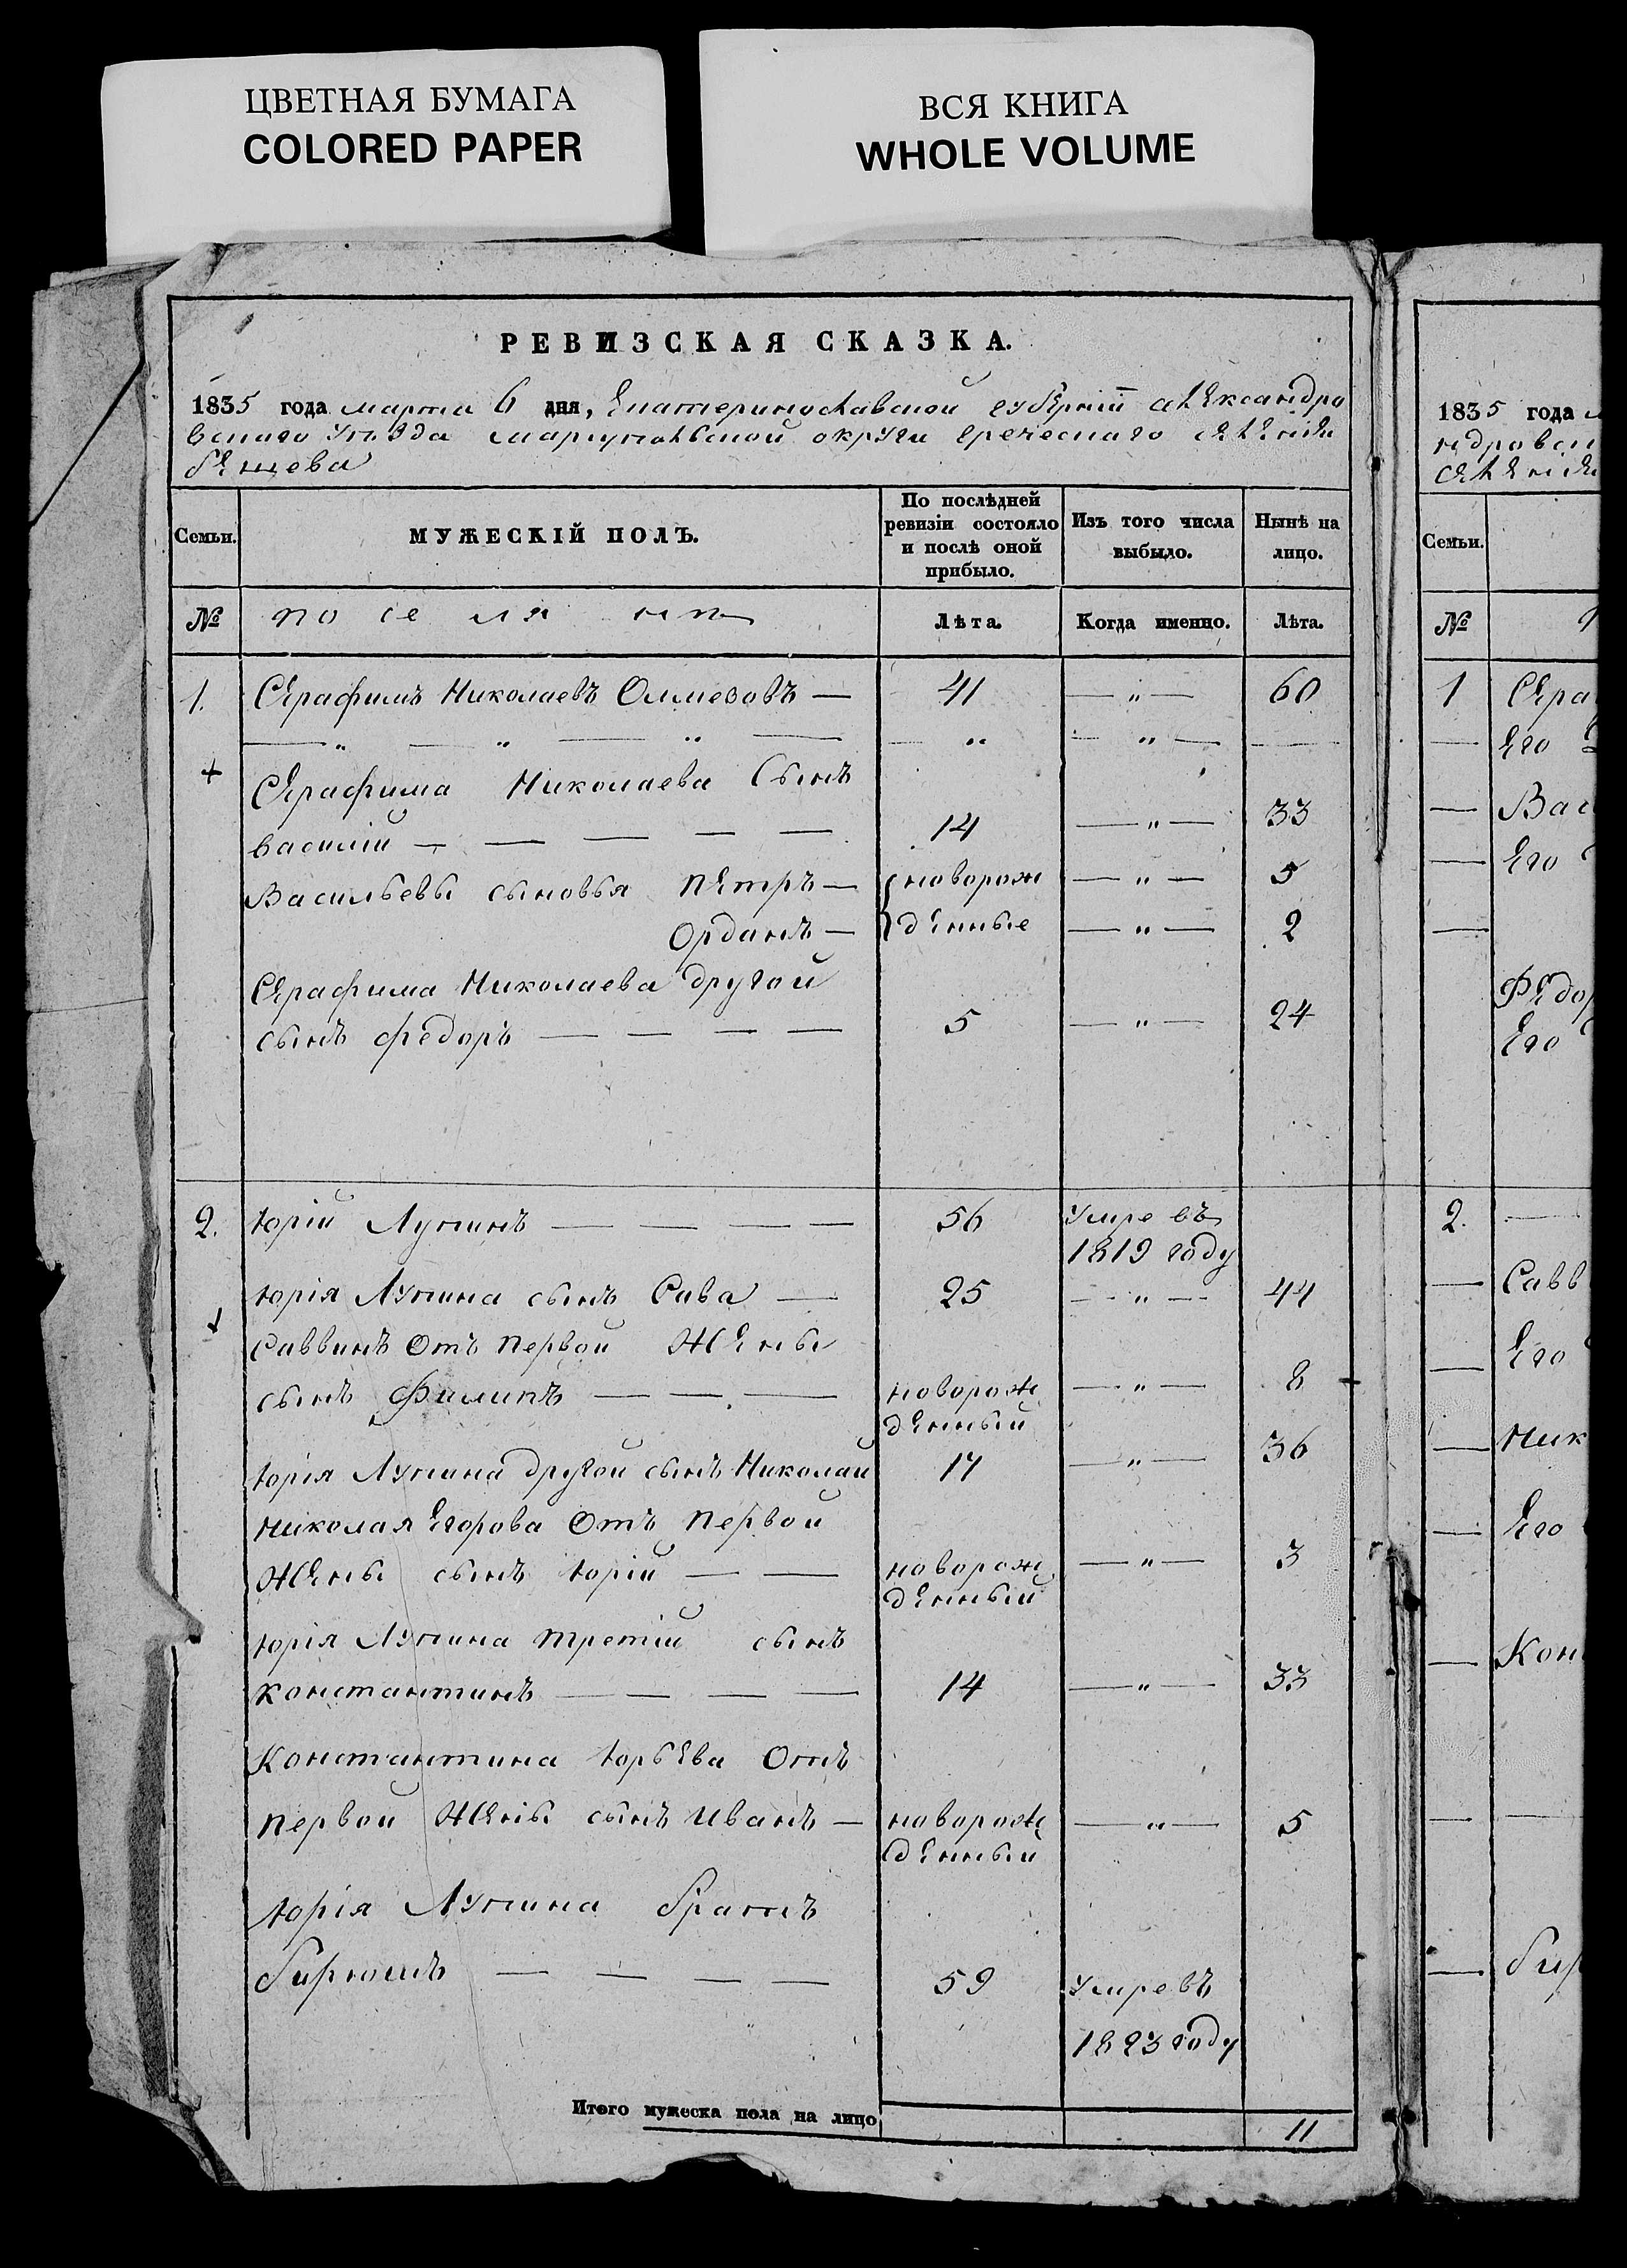 ЦВЕТНАЯ БУМАГА
COLORED PAPER
ВСЯ КНИГА
WHOLE VOLUME
РЕВИЗСКАЯ СКАЗКА.
1835 года марта 6 дня, Екатеринославской губернии Александро
вскаго уезда мариупольской округи греческаго селения
бешева
Семьи.
МУЖЕСКІЙ ПОЛЪ.
По послѣдней
ревизіи состояло
и послѣ оной
прибыло.
Изъ того числа
выбыло.
Нынѣ на
лицо.
№ поселянъ Лѣта. Когда именно. Лѣта.
1. Серафимъ Николаевъ — 41 — „ — 60
— „ — „ — „ — — „ — „ — —
Серафима Николаева Сынъ
василій — — — — — 14 — „ — 33
Васильевы сыновья Петръ — новорож — „ — 5
Орданъ — денные — „ — 2
Серафима Николаева другой
сынъ федоръ — — — — 5 — „ — 24
2. Юрій Лупинъ — — — — 56 Умре въ
1819 году
Юрія Лупина сынъ Сава — 25 — „ — 44
Саввинъ Отъ Первой Жены
сынъ Филипъ — — — новорож — „ — 8
денный
Юрія Лупина другой сынъ Николай 17 — „ — 36
Николая Егорова Отъ Первой
Жены сынъ Юрій — — новорож — „ — 3
денный
Юрія Лупина третій сынъ
Константинъ — — — — 14 — „ — 33
Константина Юрьева Отъ
первой Жены сынъ Иванъ — новорож — „ — 5
денный
Юрія Лупина братъ
— — — — 59 Умре въ
1823 году
Итого мужеска пола на лицо 11
1835 года
ндровск
селения
Семьи.
№
1 Сера
— Его
— Вас
— Его
—
Федор
Его
2. —
— Савв
— Его
— Ник
— Его
— Кон
— —